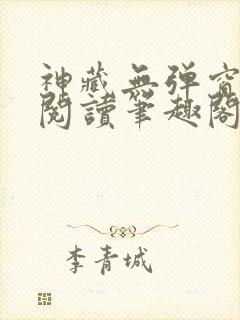 神藏無彈窗
閱讀筆趣閣
李青城